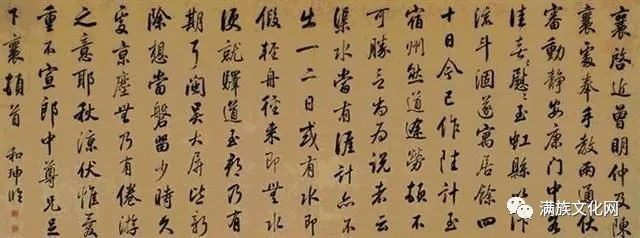 襄啓近曾明仲及陳
襄處奉手教兩通伏
審動靜安康門中各
佳喜々慰々至虹縣以汴
流斗涸遂寓居餘四
十日今已作陸計至
宿州然道途勞頓不
可勝言尚為說者云
渠水當有涯計亦不
出一二日或有水即
假輕舟徑來即無水
便就驛道至都乃有
期耳閩吳大屏皆新
除想當磐留少時久
處京塵無乃有倦游
之意耶秋涼伏惟愛
重不宣郎中尊兄足
下襄頓首 和珅臨
满族文化网